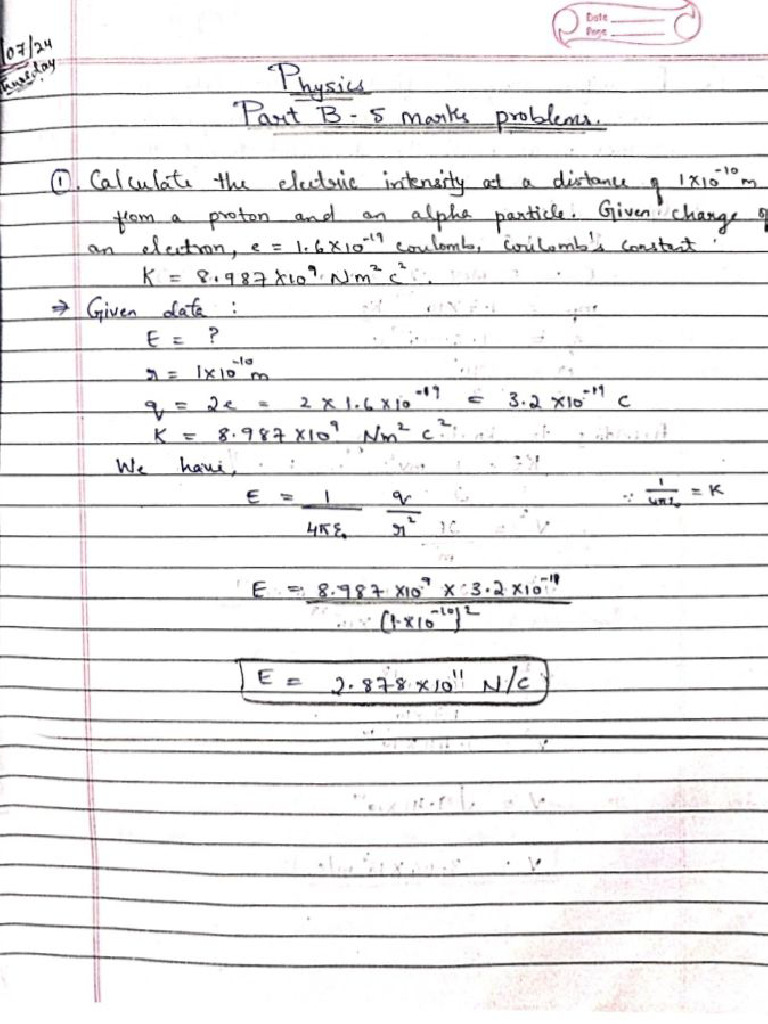 Date
Page
07/24
Thursday
Physics
Part B - 5 marks problems.
①. Calculate the electric intensity at a distance of 1×10⁻¹⁰ m
from a proton and an alpha particle. Given charge of
an electron, e = 1.6×10⁻¹⁹ coulomb, coulomb's constant
K = 8.987×10⁹ Nm² c².
⇒ Given data :
E = ?
r = 1×10⁻¹⁰ m
q = 2e = 2 × 1.6×10⁻¹⁹ = 3.2×10⁻¹⁹ C
K = 8.987×10⁹ Nm² c²
We have,
E = 1/4πε₀ q/r² ∵ 1/4πε₀ = K
E = 8.987×10⁹ × 3.2×10⁻¹⁹ / (1×10⁻¹⁰)²
E = 2.878×10¹¹ N/c